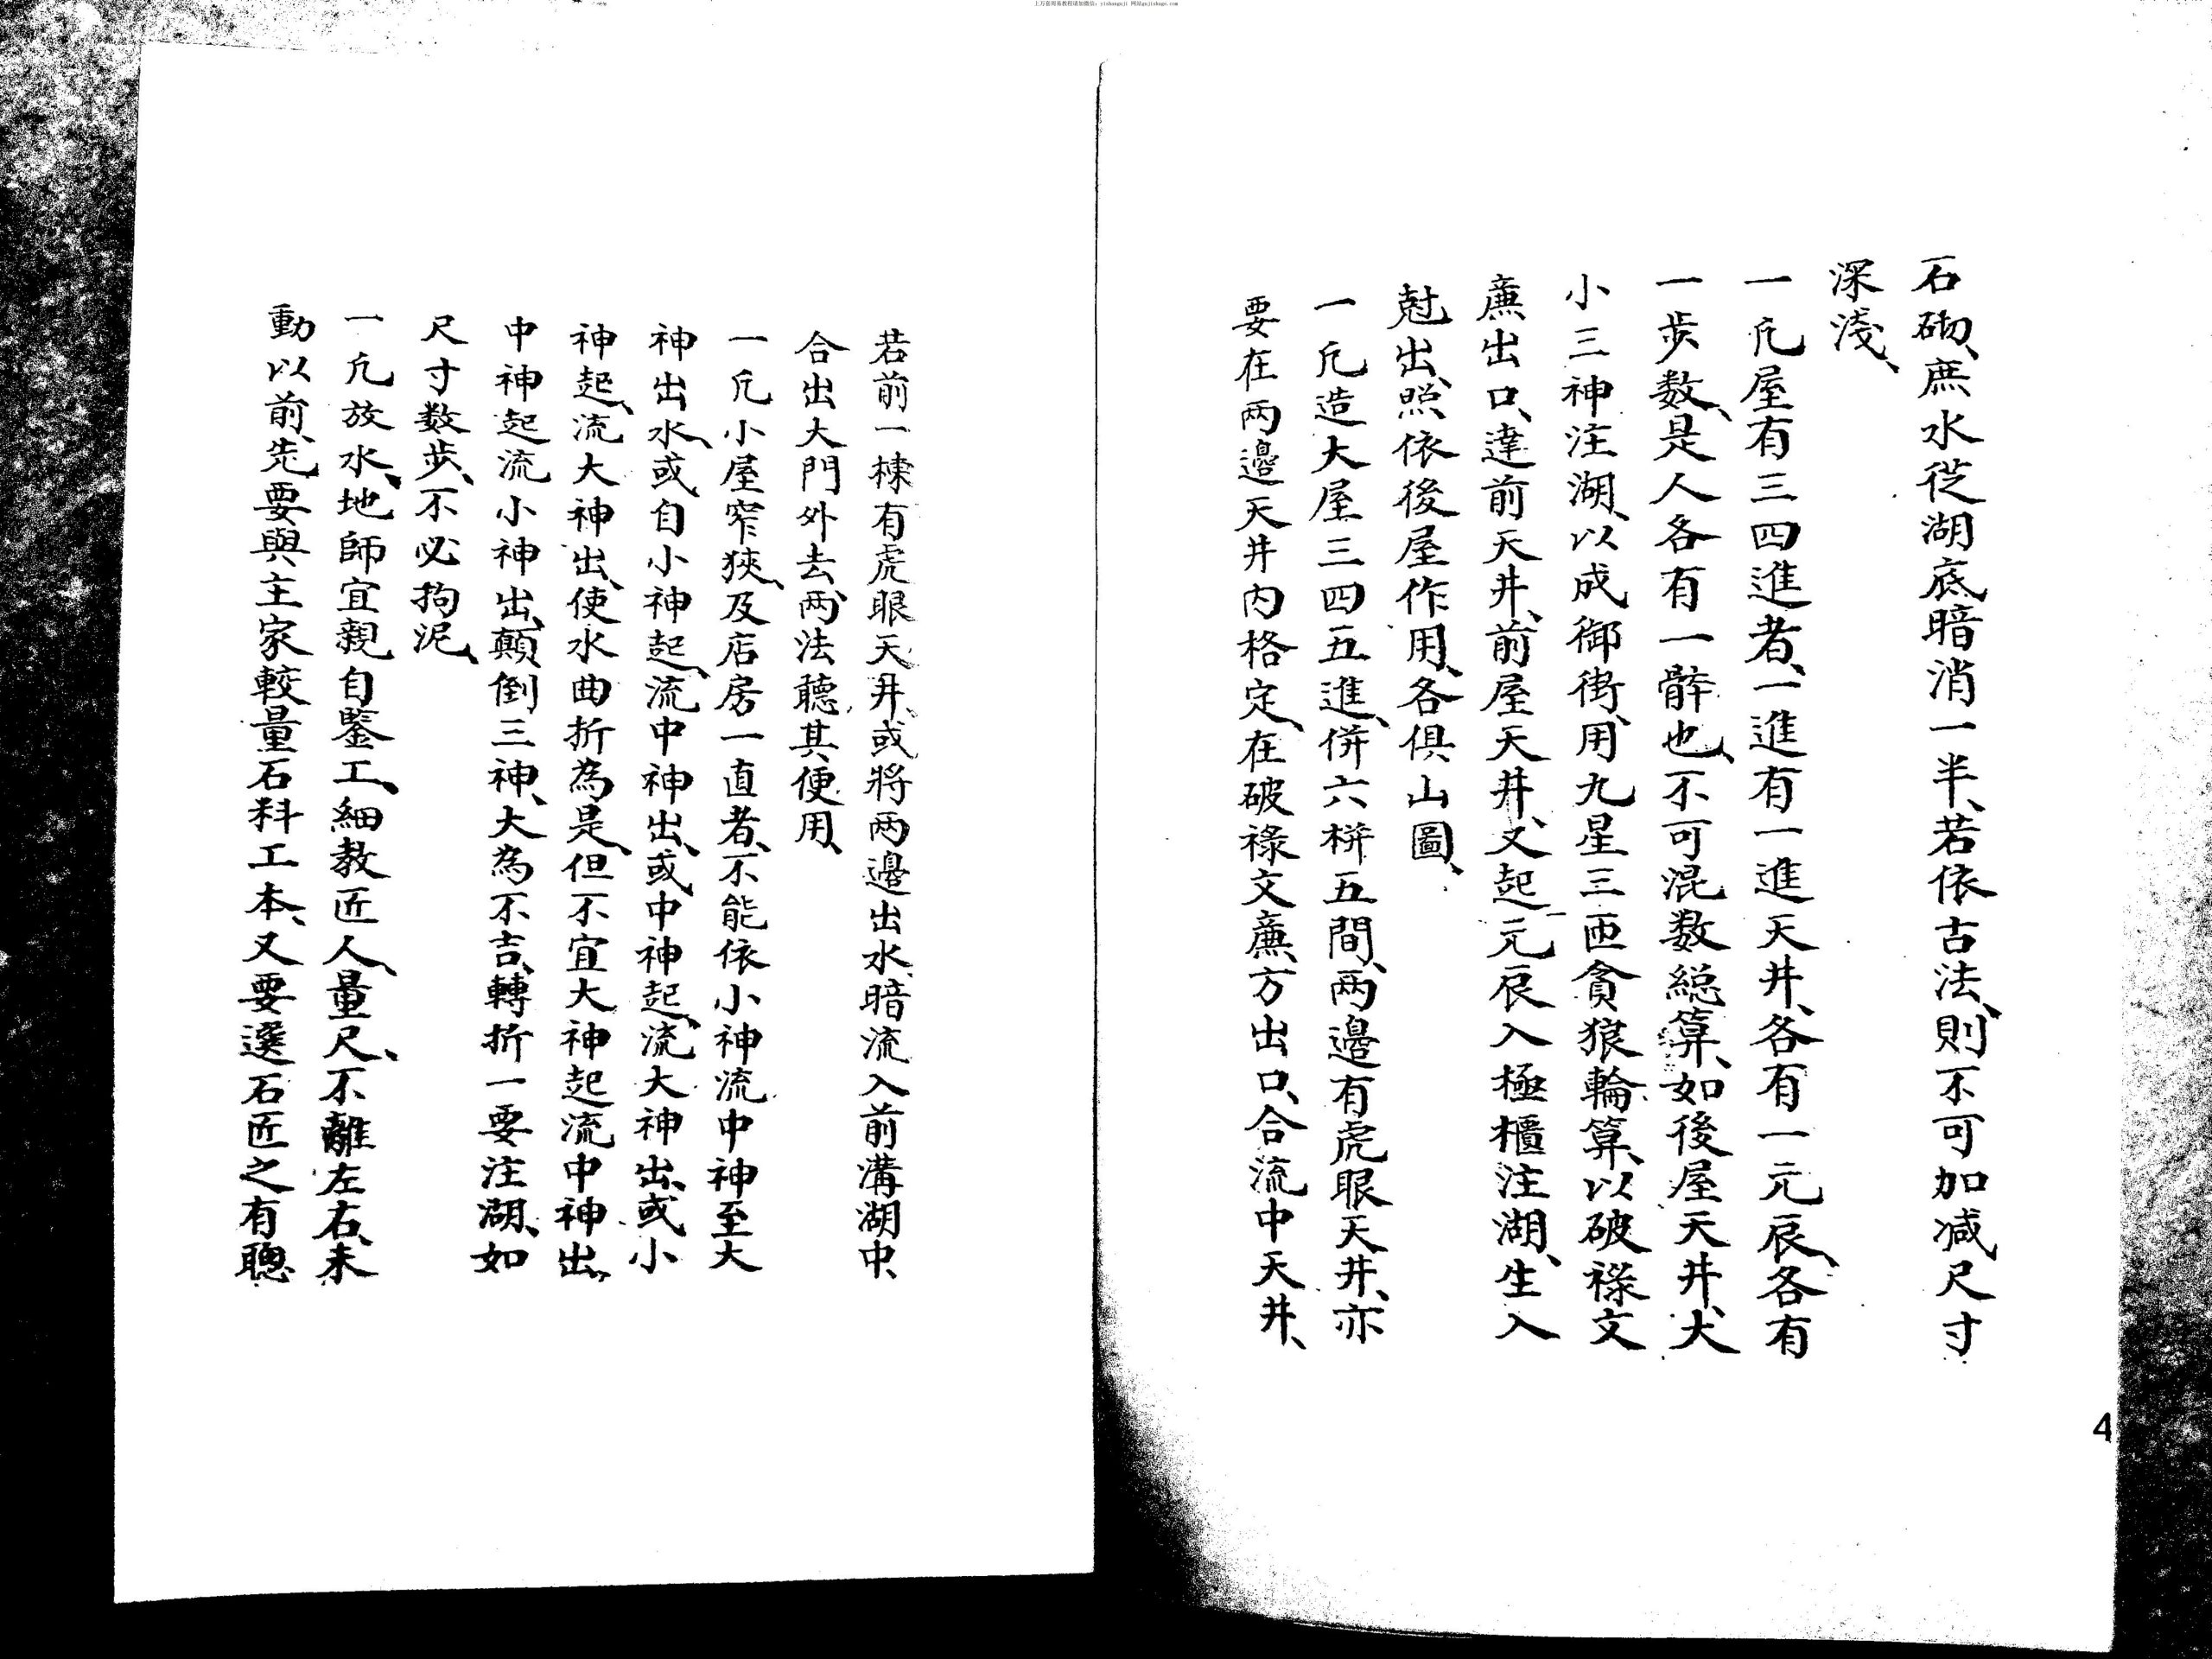 上万套周易教程请加微信：yishanguji 网站gujishuge.com
石砌、庶水從湖底暗消一半、若依古法、則不可加减尺寸
深淺、
一凢屋有三四進者、一進有一進天井、各有一元辰、各有
一步数、是人各有一骵也、不可混数総算、如後屋天井、大
小三神注湖、以成御街、用九星三匝貪狼輪算、以破祿文
廉出口、達前天井、前屋天井、又起元辰入極櫃注湖、生入
尅出、照依後屋作用、各俱山圖、
一凢造大屋三四五進、併六栟五間、两邉有虎眼天井、亦
要在两邉天井内格定、在破祿文廉方出口、合流中天井、
若前一棟有虎眼天井、或將两邉出水、暗流入前溝湖中、
合出大門外去、两法聽其便用、
一凢小屋窄狹、及店房一直者、不能依小神流中神至大
神出水、或自小神起、流中神出、或中神起、流大神出、或小
神起、流大神出、使水曲折為是、但不宜大神起流中神出、
中神起流小神出、顛倒三神、大為不吉、轉折一要注湖、如
尺寸数步、不必拘泥、
一凢放水、地師宜親自鍳工、細教匠人、量尺、不離左右、未
動以前、先要與主家較量石料工本、又要選石匠之有聰
4